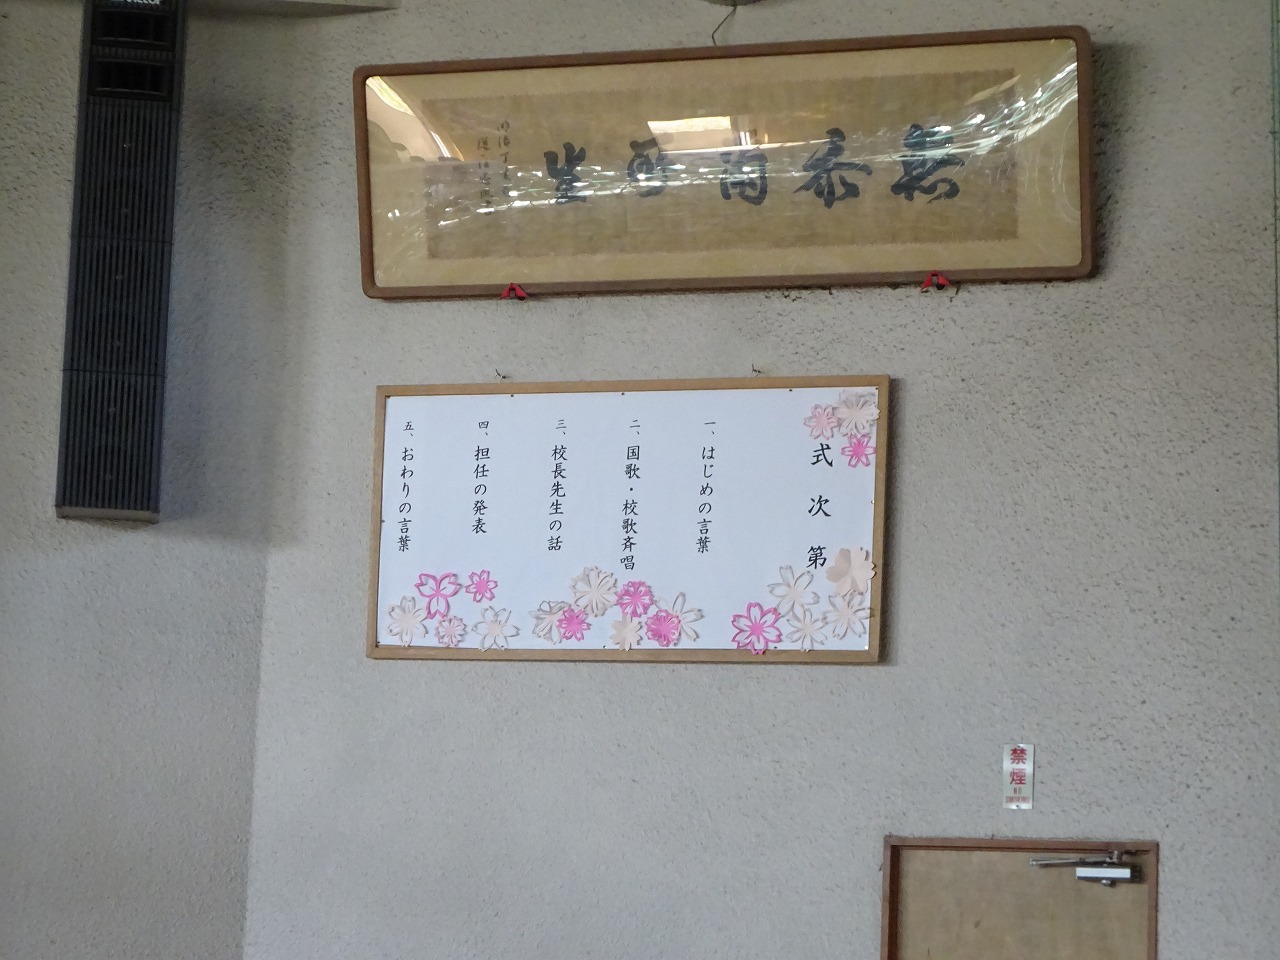 無忝爾所生
式次第
一、はじめの言葉
二、国歌・校歌斉唱
三、校長先生の話
四、担任の発表
五、おわりの言葉
禁煙